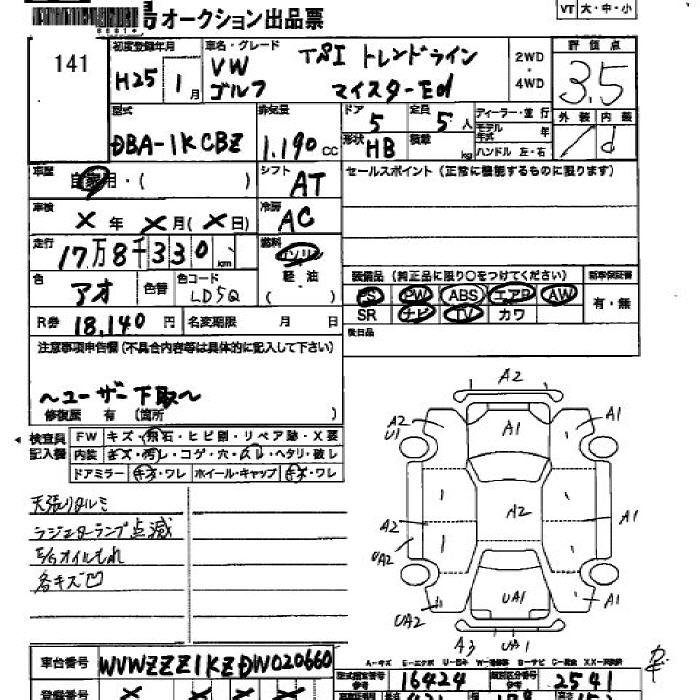 号オークション出品票
VT 大・中・小
141
初度登録年月 H25年 1月
車名・グレード VW ゴルフ TSI トレンドライン マイスターEd
2WD・4WD
評価点 3.5
外装 内装 d
型式 DBA-1KCBZ
排気量 1.190 CC
ドア 5 定員 5人
形状 HB 積載 kg
ディーラー・並行
モデル年式 年
ハンドル 左・右
車歴 自家用・( )
シフト AT
セールスポイント (正常に機能するものに限ります)
車検 ×年 ×月(×日)
冷房 AC
走行 17万8千330km
燃料 ガソリン 軽油 ( )
色 アオ 色替 色コード LD5Q
装備品 (純正品に限り○をつけてください) 新車保証書
PS PW ABS エアB AW 有・無
SR ナビ TV カワ
後日品
R券 18,140円 名変期限 月 日
注意事項申告欄(不具合内容等は具体的に記入して下さい)
〜ユーザー下取〜
修復歴 有 (箇所 )
検査員記入欄 FW キズ・飛石・ヒビ割・リペア跡・X要
内装 キズ・汚レ・コゲ・穴・スレ・ヘタリ・破レ
ドアミラー キズ・ワレ ホイール・キャップ キズ・ワレ
天張りタルミ
ラジエターランプ点滅
E/Gオイルもれ
各キズ凹
A2
A2 U1 A1 A1
A2 A2 A1
UA2
UA2 UA1 A1
A3 UA1
車台番号 WVWZZZ1KZDW020660
型式指定番号 16424 類別区分番号 2541
登録番号